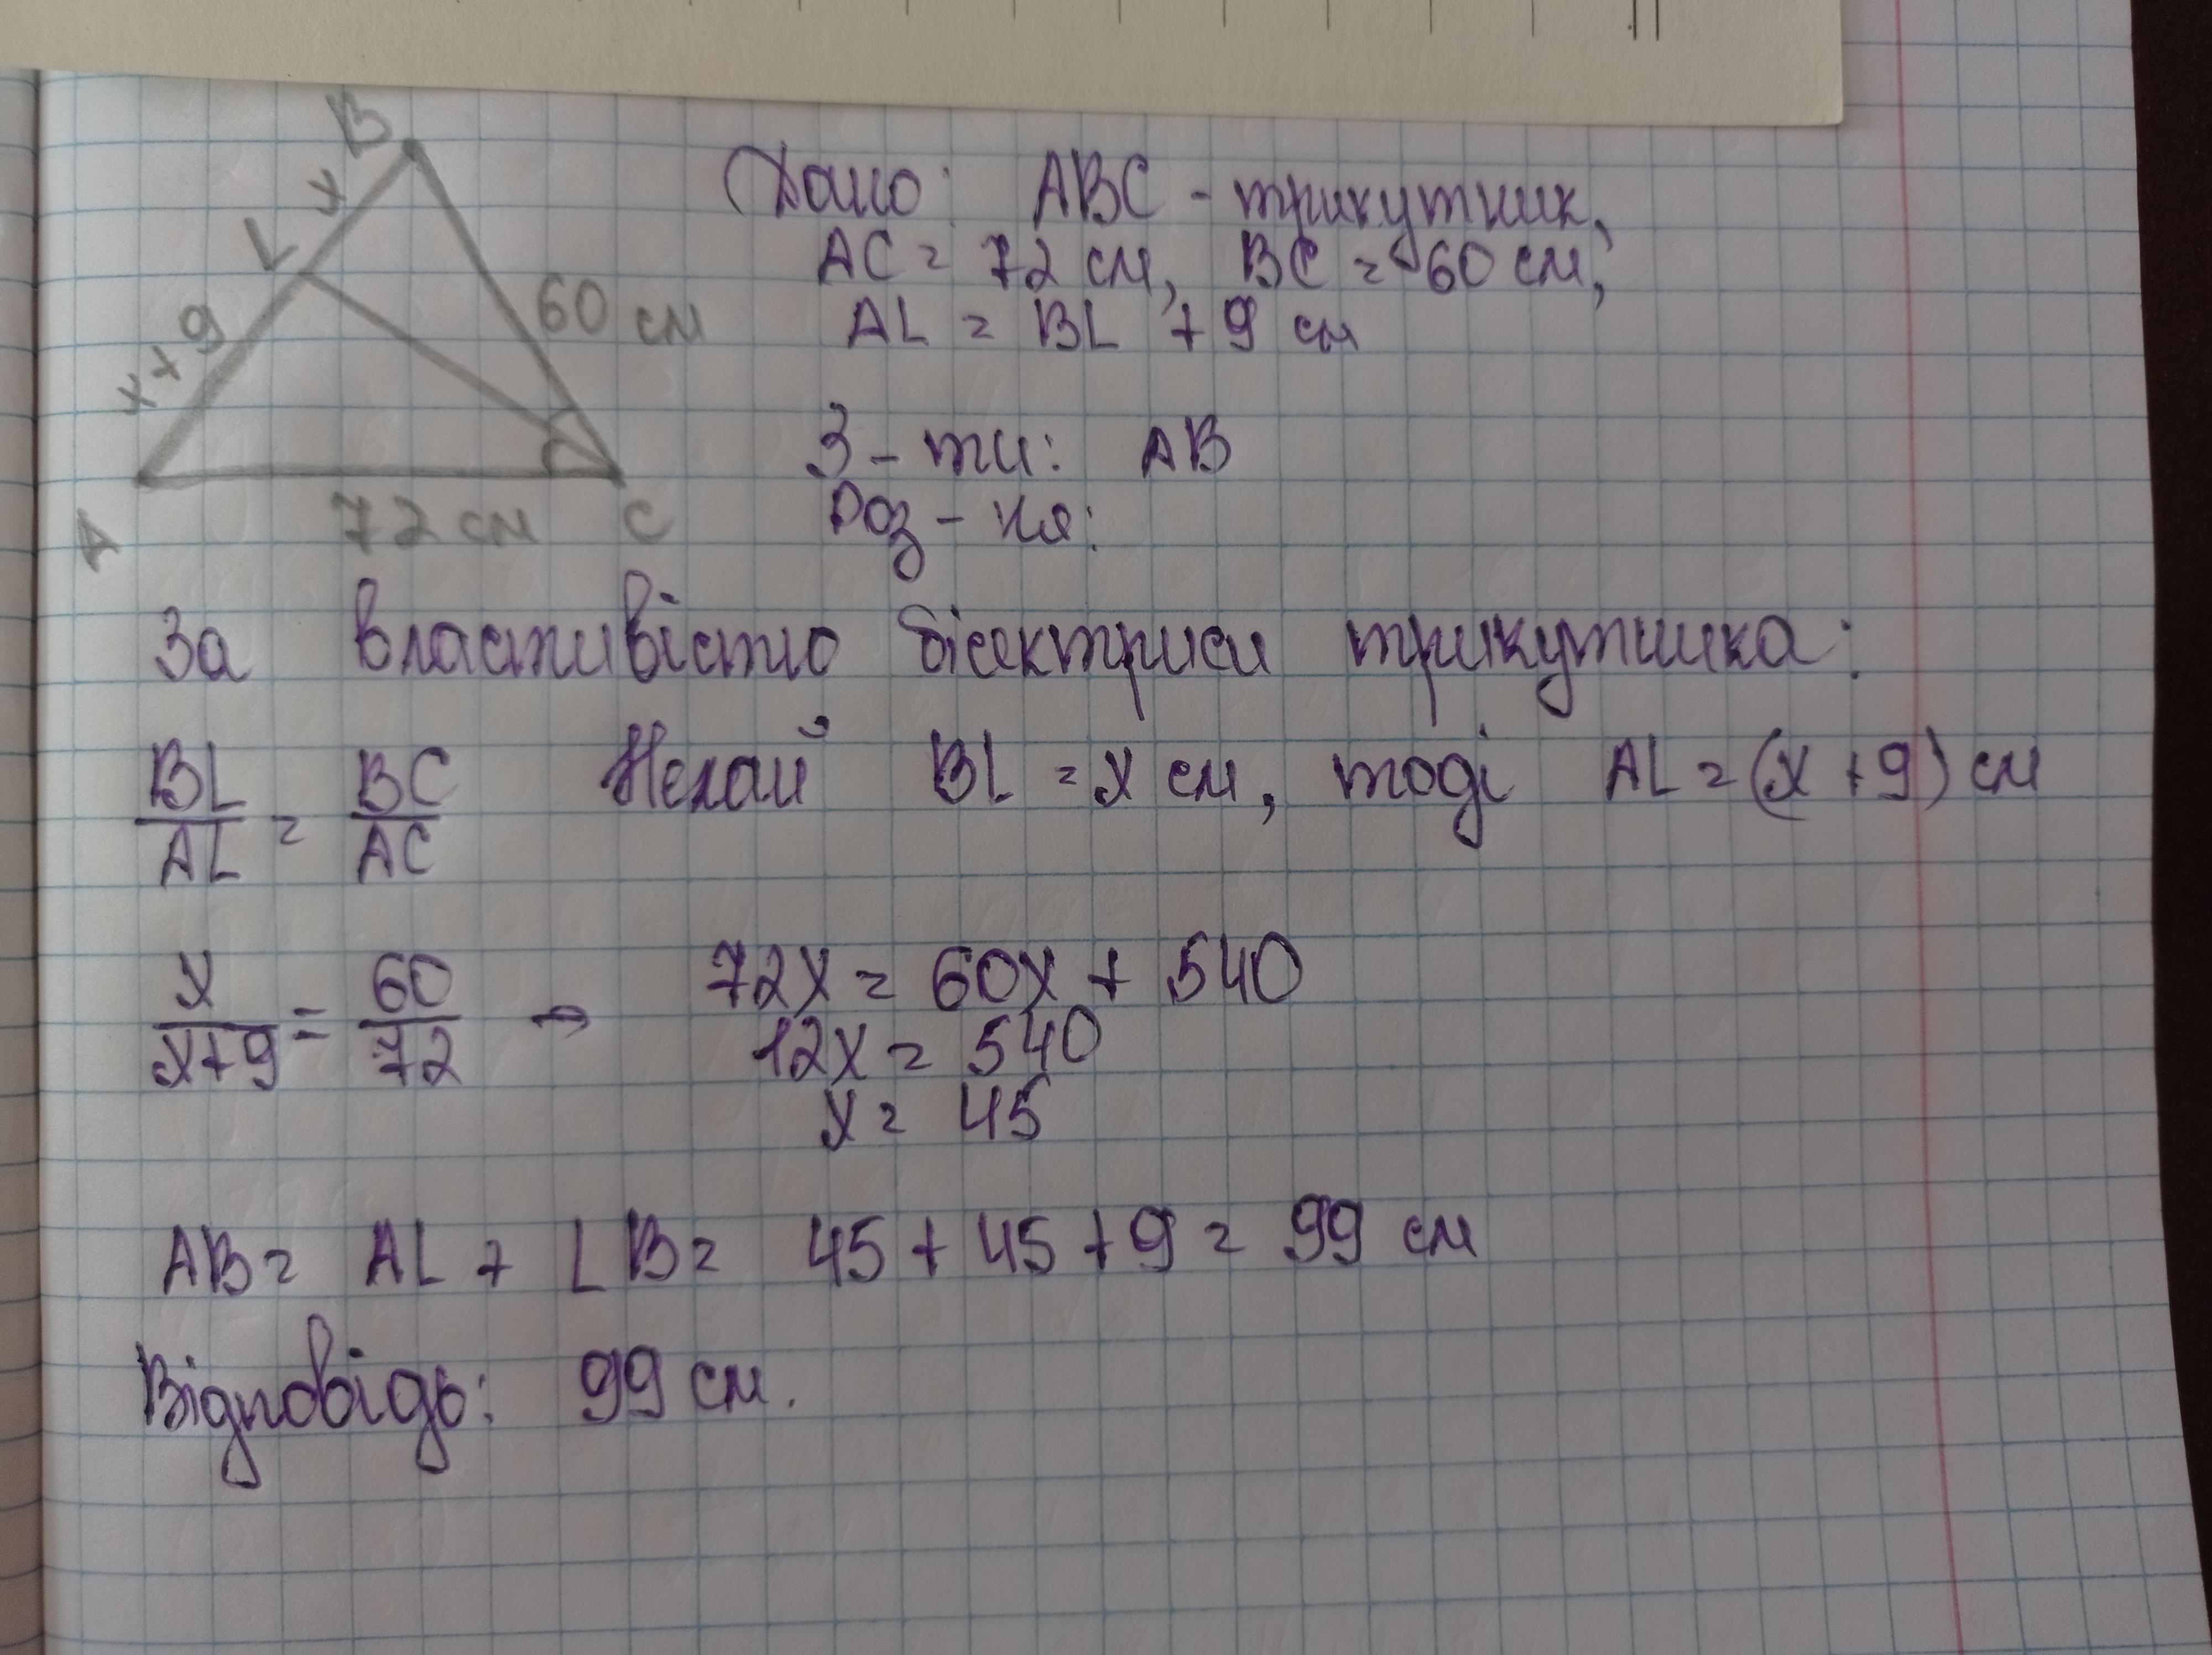 B
x
L
x+9
60 см
A
72 см
C
Дано: ABC - трикутник,
AC = 72 см, BC = 60 см,
AL = BL + 9 см
З-ти: AB
Роз-ня:
За властивістю бісектриси трикутника:
BL/AL = BC/AC Нехай BL = x см, тоді AL = (x+9) см
x/x+9 = 60/72 → 72x = 60x + 540
12x = 540
x = 45
AB = AL + LB = 45 + 45 + 9 = 99 см
Відповідь: 99 см.